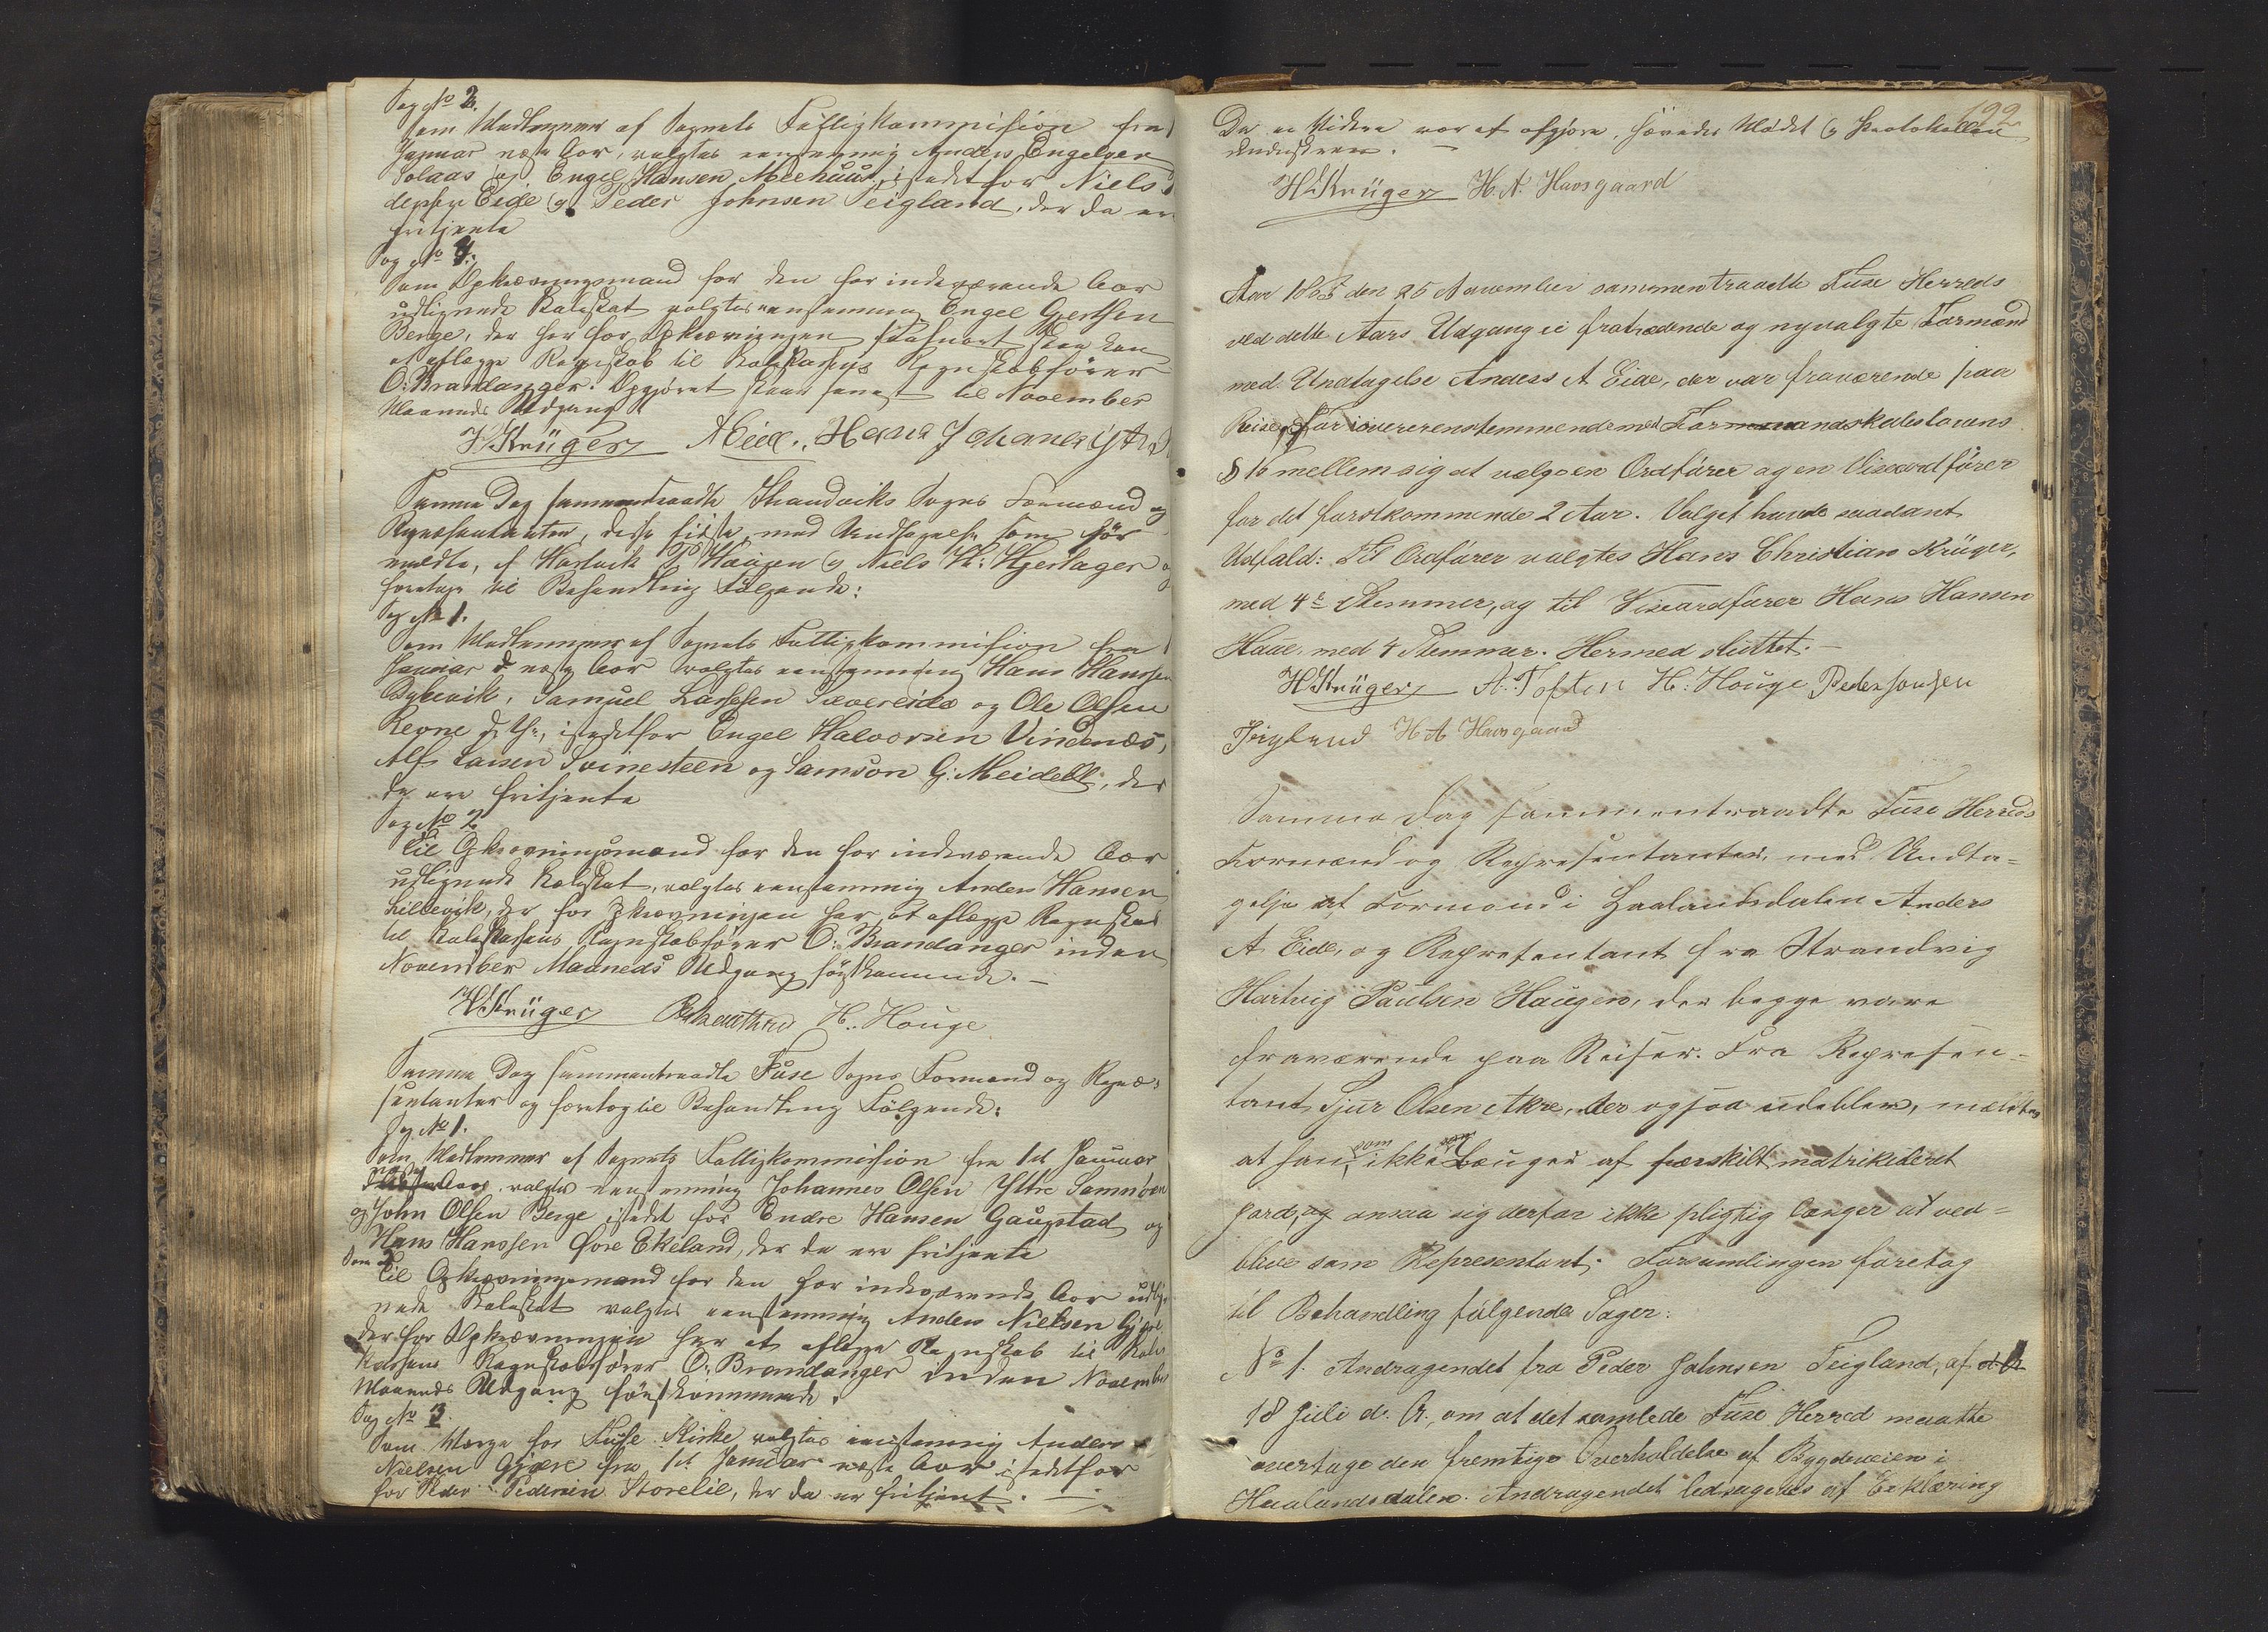 Sag No 2.
Som Medlemmer af Sognets Fattigkommission fra 1
Januar næste Aar, valgtes eenstemmig Anders Engelsen
Solaas og Engel Hansen Meehuus, istedetfor Niels
Eide og Peder Johnsen Teigland, der da ere
fritjente
Sag No 4.
Som Opkrævningsmand for den for indeværende Aar
udlignede Skoleskat valgtes eenstemmig Engel Gjertsen
Berge, der har for Opkrævningen saasnart skee kan
at aflægge Regnskab til Skolekassens Regnskabsfører
O. Brandanger. Opgjøret skeer senest til November
Maaneds Udgang
H Krüger A Eide. Hans Johanes
Samme Dag sammentraadte Strandviks Sogns Formænd og
Repræsentanter, disse sidste, med Undtagelse som før
meldte, af Hartvik P Haugen og Niels Hjertager og
foretoge til Behandling Følgende:
Sag No 1.
Som Medlemmer af Sognets Fattigkommission fra 1
Januar næste Aar valgtes eenstemmig Hans Hanssen
Samuel Larssen Sævereide og Ole Olsen
Revne istedetfor Engel Halvorsen Vindenæs,
Alf Larsen Svinesteen og Samson G. Meidell, der
da ere fritjente
Sag No 2
Til Opkrævningsmand for den for indeværende Aar
udlignede Skoleskat, valgtes eenstemmig Anders Hansen
Lillevik, der for Opkrævningen har at aflægge Regnskab
til Skolekassens Regnskabsfører O. Brandanger inden
November Maaneds Udgang førstkommende. —
H Krüger H. Houge
Samme Dag sammentraadte Fuse Sogns Formænd og Repræ-
sentanter og foretog til Behandling Følgende:
Sag No 1.
Som Medlemmer af Sognets Fattigkommission fra 1ste Januar
næste Aar, valgtes eenstemmig Johannes Olsen Ytre Samnøen
og John Olsen Berge istedet for Endre Hansen Gaupstad og
Hans Hanssen Øvre Ekeland, der da ere fritjente
Til Opkrævningsmand for den for indeværende Aar udlig-
nede Skoleskat valgtes eenstemmig Anders Nielsen Gjære
der for Opkrævningen har at aflægge Regnskab til Skole
kassens Regnskabsfører O. Brandanger inden November
Maaneds Udgang førstkommende.
Sag No 3.
Som Værge for Fuse Kirke valgtes eenstemmig Anders
Nielsen Gjære fra 1ste Januar næste Aar istedetfor
for Peder Pedersen Storelie, der da er fritjent. —
199
Da ei Videre var at afgjøre, hævedes Mødet og Protokollen
underskreven. —
H Krüger H. A. Havsgaard
Aar 1865 den 25 November sammentraadte Fuse Herreds
ved dette Aars Udgang ei fratrædende og nyvalgte Formænd
med Undtagelse Anders A Eide, der var fraværende paa
Reise, for i overeenstemmende med Formandskabslovens
§ 16 mellem sig at vælge en Ordfører og en Viseordfører
for det førstkommende 2 Aar. Valget havde saadant
Udfald: Til Ordfører valgtes Hans Christian Krüger,
med 4 Stemmer, og til Viseordfører Hans Hansen
Haue med 4 Stemmer. Hermed sluttet. —
H Krüger A. Toften H. Houge Peder Jonsen
Teigland H A Havsgaard
Samme Dag sammentraadte Fuse Herreds
Formænd og Repræsentanter, med Undta-
gelse af Formand i Haalandsdalen Anders
A Eide, og Repræsentant fra Strandvig
Hartvig Paulsen Haugen, der begge vare
fraværende paa Reiser. Fra Repræsen-
tant Sjur Olsen Akre, der ogsaa udeblev, meldtes
at han, som ikke Længer af særskilt matrikuleret
Jord, og ansaa sig derfor ikke pligtig længer at ved-
blive som Representant. Forsamlingen foretog
til Behandling følgende Sager:
No 1. Andragendet fra Peder Johnsen Teigland, af
18 Juli d. A., om at det samlede Fuse Herred maatte
overtage den fremtige Overholdelse af Bygdeveien i
Haalandsdalen. Andragendet ledsagedes af Erklæring